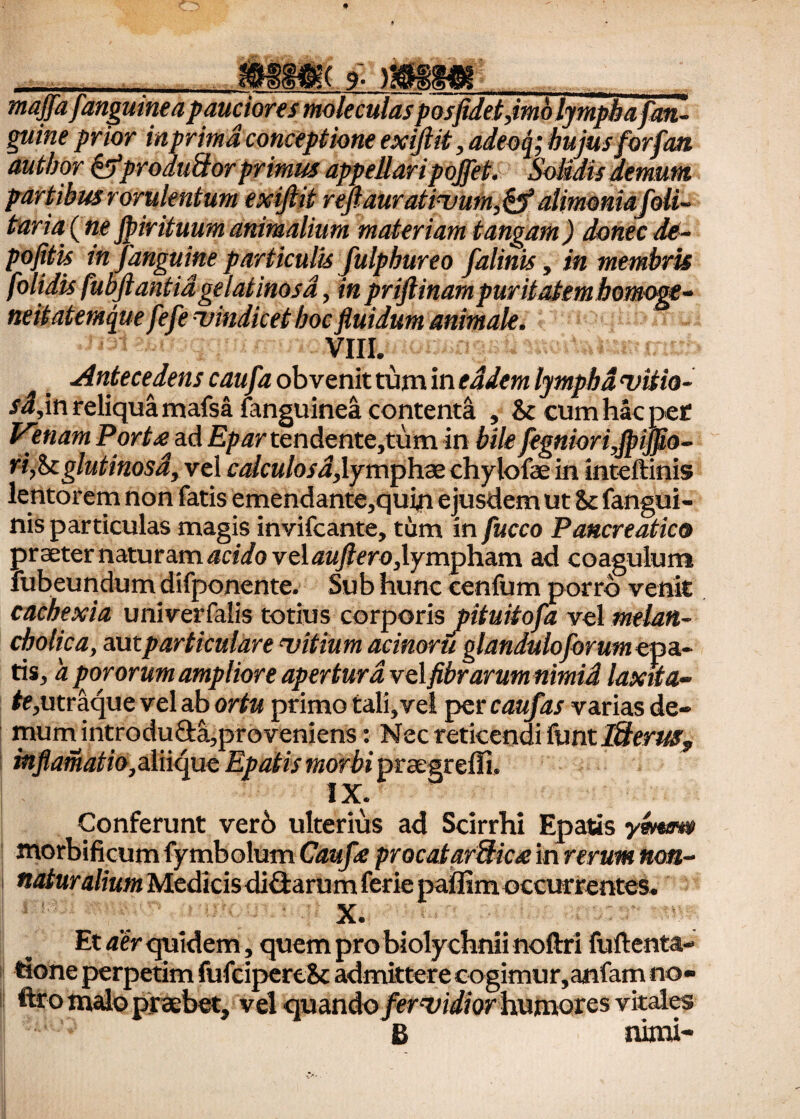 ( 9. )
maſſa ſanguinea pauciores moleculas posſidet, imò lympha ſan-
guine prior in primâ conceptione exiſtit, adeoq; hujus forſan
author & productor primus appellari poſſet. Solidis demum
partibus rorulentum exiſtit reſtaurativum, & alimonia ſoli-
taria ( ne ſpirituum animalium materiam tangam ) donec de-
poſitis in ſanguine particulis ſulphureo ſalinis, in membris
ſolidis ſubſtantiâ gelatinosâ, in priſtinam puritatem homoge-
neitatemque ſeſe vindicet hoc fluidum animale.
VIII.
Antecedens cauſa obvenit tùm in eâdem lymphâ vitio-
sâ, in reliquâ maſsâ ſanguineâ contentâ , & cum hâc per
Venam Portæ ad Epar tendente, tùm in bile ſegniori, ſpiſſio-
ri, & glutinosâ, vel calculosâ, lymphæ chyloſæ in inteſtinis
lentorem non ſatis emendante, quin ejusdem ut & ſangui-
nis particulas magis inviſcante, tùm in ſucco Pancreatico
præter naturam acido vel auſtero, lympham ad coagulum
ſubeundum diſponente. Sub hunc cenſum porrò venit
cachexia univerſalis totius corporis pituitoſa vel melan-
cholica, aut particulare vitium acinorũ glanduloſorum epa-
tis, à pororum ampliore aperturâ vel fibrarum nimiâ laxita-
te, utrâque vel ab ortu primo tali, vel per cauſas varias de-
mum introductâ, proveniens : Nec reticendi ſunt Icterus,
inflam̃atio, aliique Epatis morbi prægreſſi.
IX.
Conferunt verò ulterius ad Scirrhi Epatis
morbificum ſymbolum Cauſæ procatarcticæ in rerum non-
naturalium Medicis dictarum ſerie paſſim occurrentes.
X.
Et aër quidem, quem pro biolychnii noſtri ſuſtenta-
tione perpetim ſuſcipere & admittere cogimur, anſam no-
ſtro malo præbet, vel quando fervidior humores vitales
B nimi-